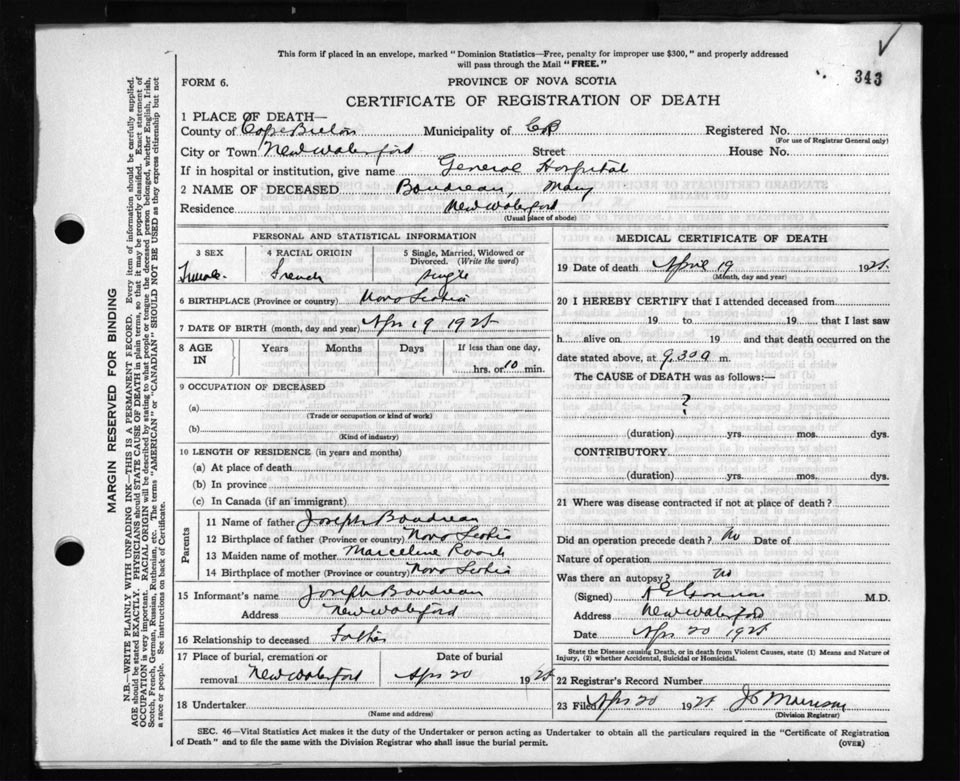 This form if placed in an envelope, marked "Dominion Statistics—Free, penalty for improper use $300," and properly addressed
will pass through the Mail "FREE."
343
FORM 6.
PROVINCE OF NOVA SCOTIA
CERTIFICATE OF REGISTRATION OF DEATH
1 PLACE OF DEATH—
County of Cape Breton Municipality of CB Registered No.
(For use of Registrar General only)
City or Town New Waterford Street House No.
If in hospital or institution, give name General Hospital
2 NAME OF DECEASED Boudreau, Mary
Residence New Waterford
(Usual place of abode)
PERSONAL AND STATISTICAL INFORMATION
3 SEX 4 RACIAL ORIGIN 5 Single, Married, Widowed or
Divorced. (Write the word)
Female French Single
6 BIRTHPLACE (Province or country) Nova Scotia
7 DATE OF BIRTH (month, day and year) Apr 19 192
8 AGE IN Years Months Days If less than one day,
hrs. or 10 min.
9 OCCUPATION OF DECEASED
(a)
(Trade or occupation or kind of work)
(b)
(Kind of industry)
10 LENGTH OF RESIDENCE (in years and months)
(a) At place of death
(b) In province
(c) In Canada (if an immigrant)
Parents
11 Name of father Joseph Boudreau
12 Birthplace of father (Province or country) Nova Scotia
13 Maiden name of mother Marceline
14 Birthplace of mother (Province or country) Nova Scotia
15 Informant's name Joseph Boudreau
Address New Waterford
16 Relationship to deceased Father
17 Place of burial, cremation or Date of burial
removal New Waterford Apr 20 192
18 Undertaker
(Name and address)
MEDICAL CERTIFICATE OF DEATH
19 Date of death April 19 192
(Month, day and year)
20 I HEREBY CERTIFY that I attended deceased from
19 to 19 that I last saw
h alive on 19 and that death occurred on the
date stated above, at 9.30 a m.
The CAUSE of DEATH was as follows:—
?
(duration) yrs. mos. dys.
CONTRIBUTORY
(duration) yrs. mos. dys.
21 Where was disease contracted if not at place of death?
Did an operation precede death? No Date of
Nature of operation
Was there an autopsy? No
(Signed) M.D.
Address New Waterford
Date Apr 20 192
State the Disease causing Death, or in death from Violent Causes, state (1) Means and Nature of
Injury, (2) whether Accidental, Suicidal or Homicidal.
22 Registrar's Record Number
23 Filed Apr 20 192
(Division Registrar)
SEC. 46—Vital Statistics Act makes it the duty of the Undertaker or person acting as Undertaker to obtain all the particulars required in the "Certificate of Registration
of Death" and to file the same with the Division Registrar who shall issue the burial permit.
(OVER)
MARGIN RESERVED FOR BINDING
N.B.—WRITE PLAINLY WITH UNFADING INK—THIS IS A PERMANENT RECORD. Every item of information should be carefully supplied.
AGE should be stated EXACTLY. PHYSICIANS should STATE CAUSE OF DEATH in plain terms, so that it may be properly classified. Exact statement of
OCCUPATION is very important. RACIAL ORIGIN will be described by stating to what people or tongue the deceased person belonged, whether English, Irish,
Scotch, French, German, Russian, Ruthenian, etc. The terms "AMERICAN" or "CANADIAN" SHOULD NOT BE USED as they express citizenship but not
a race or people. See instructions on back of Certificate.